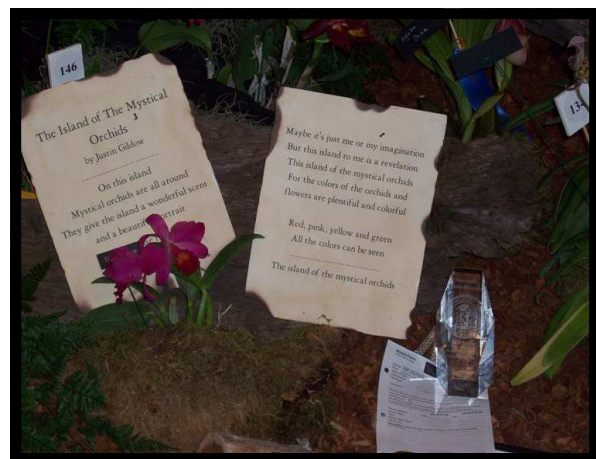 146
The Island of The Mystical
Orchids
by Justin Gildow
..............................
On this island
Mystical orchids are all around
They give the island a wonderful scent
and a beautiful portrait
Maybe it's just me or my imagination
But this island to me is a revelation
This island of the mystical orchids
For the colors of the orchids and
flowers are plentiful and colorful
Red, pink, yellow and green
All the colors can be seen
..............................
The island of the mystical orchids
134